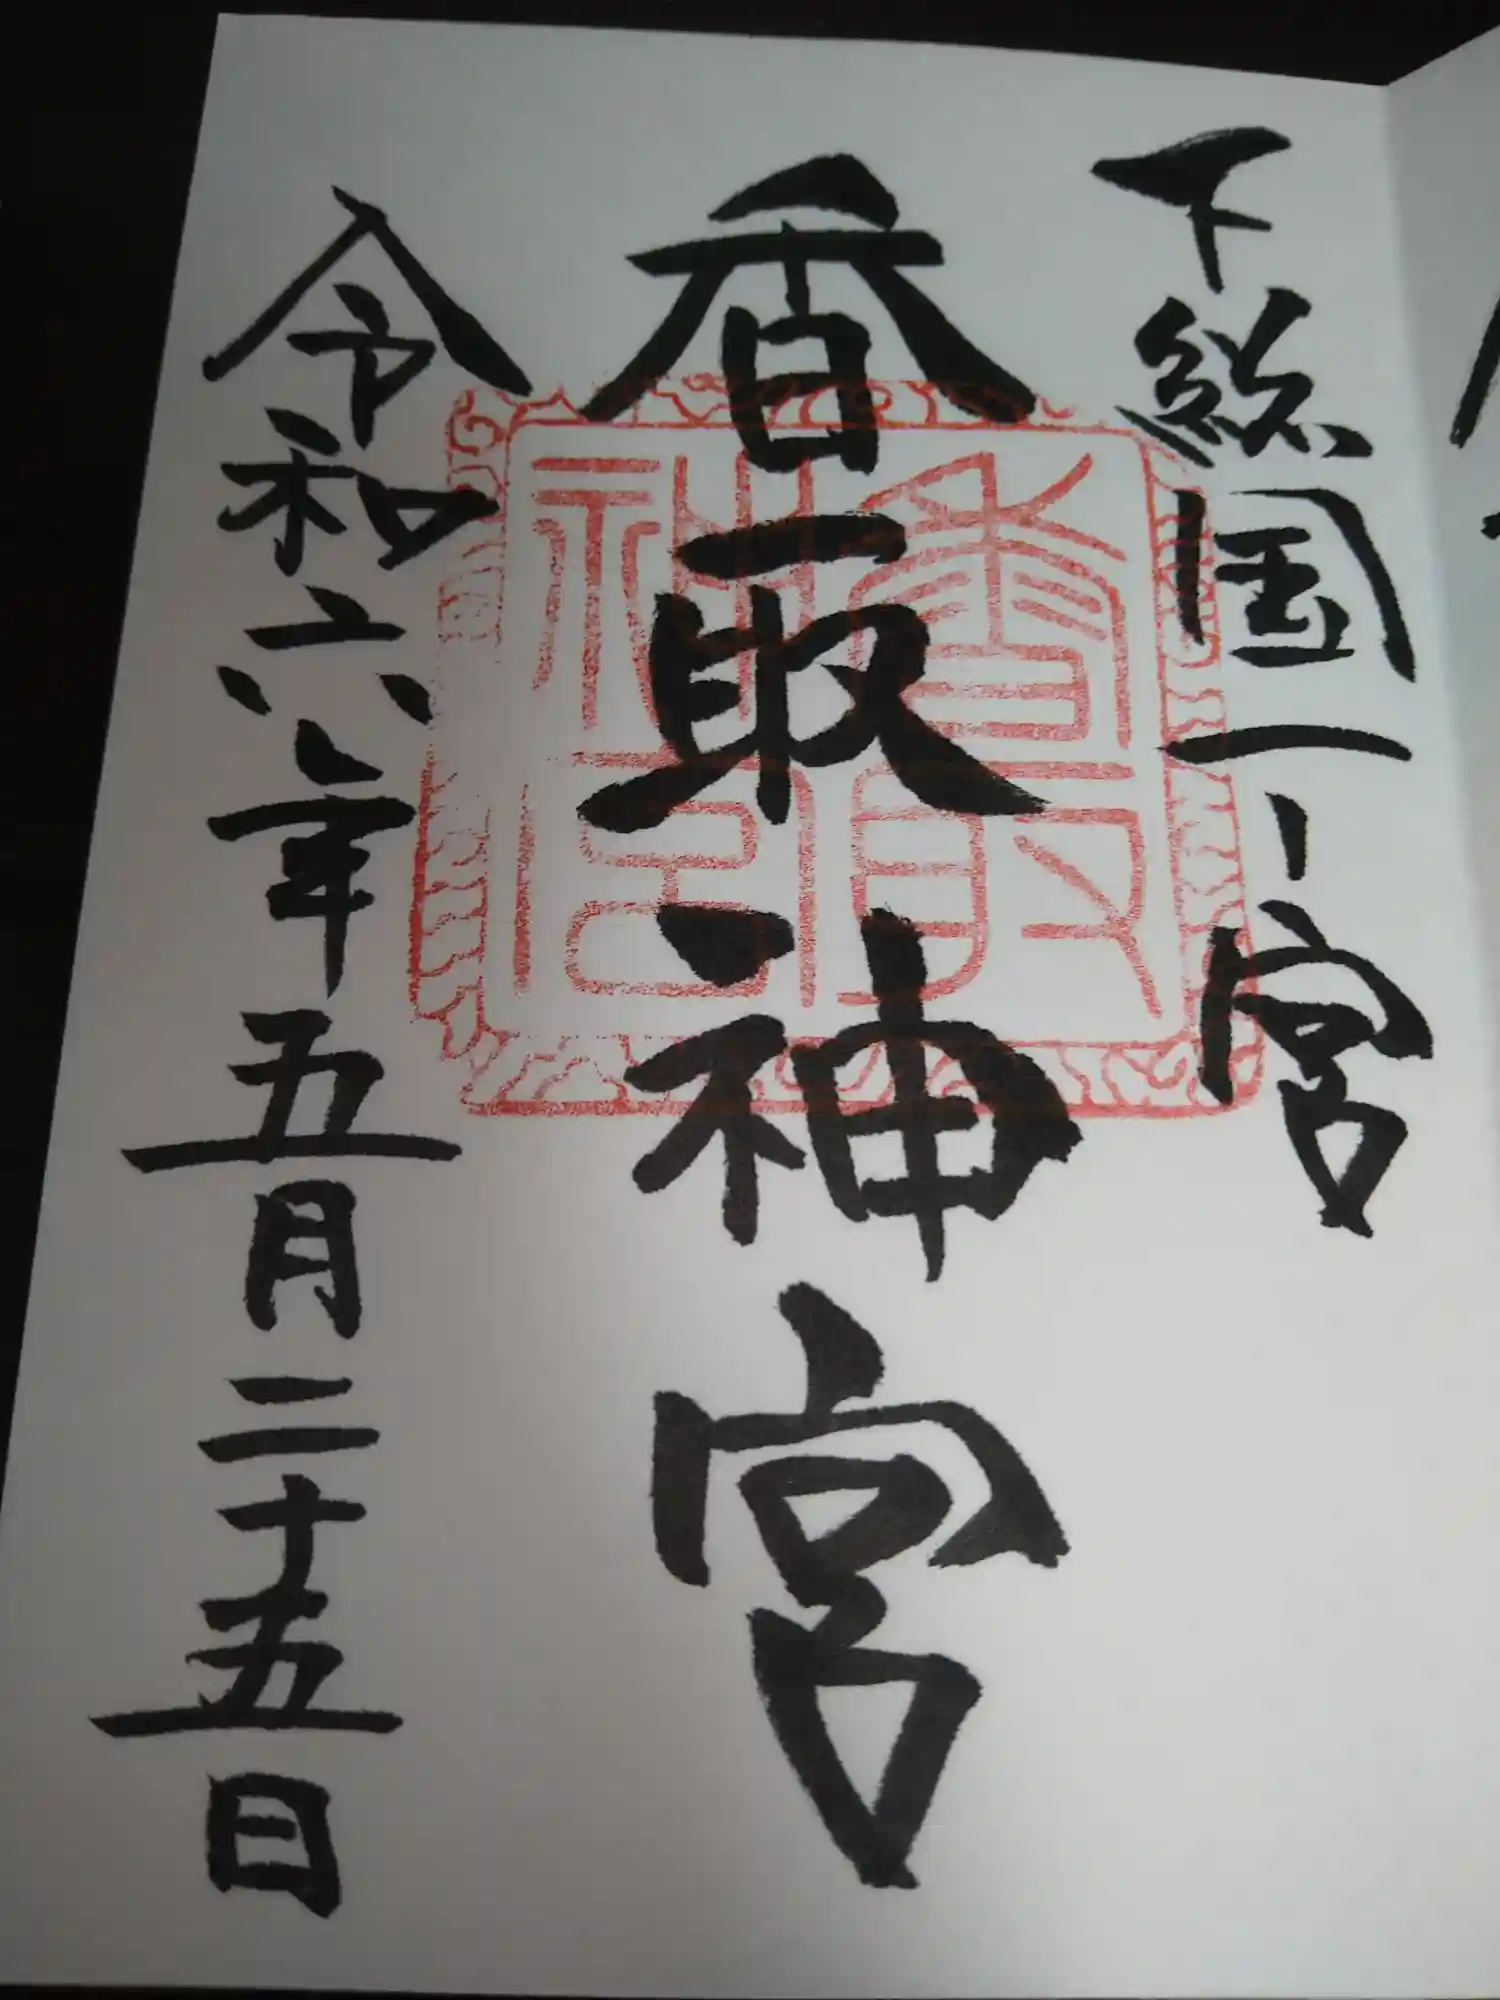 下総国一ノ宮
香取神宮
令和六年五月二十五日
香取
神宮